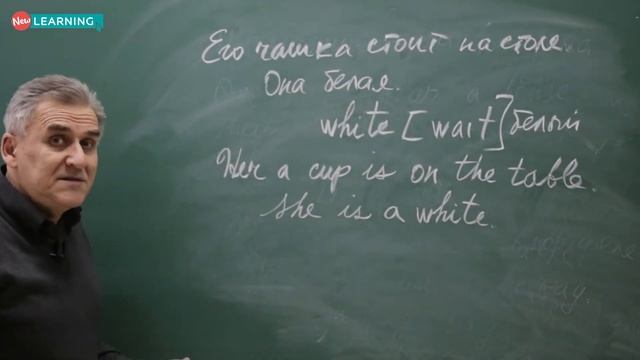 New LEARNING
Его чашка стоит на столе
Она белая.
white [wait] белый
Her a cup is on the table.
She is a white.